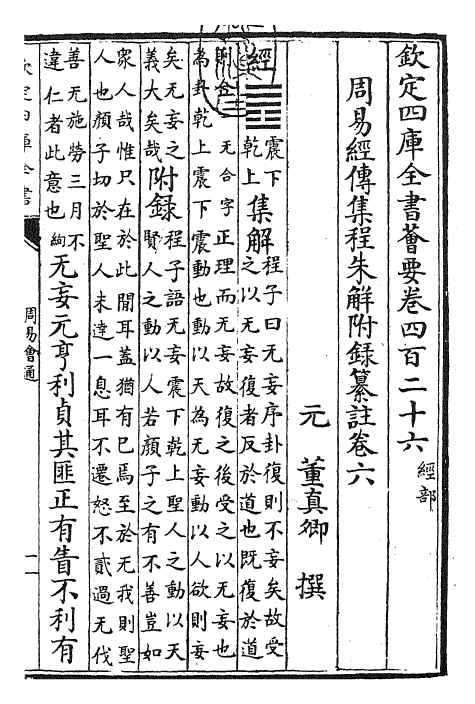 欽定四庫全書薈要卷四百二十六 經部
周易經傳集程朱解附録纂註卷六
元 董真卿 撰
經 ䷘ 震下
乾上
集解
程子曰无妄序卦復則不妄矣故受
之以无妄復者反於道也既復於道
則合 无合字 正理而无妄故復之後受之以无妄也
為卦乾上震下震動也動以天為无妄動以人欲則妄
矣无妄之
義大矣哉
附録
程子語无妄震下乾上聖人之動以天
賢人之動以人若顔子之有不善豈如
衆人哉惟只在於此閒耳蓋猶有已焉至於无我則聖
人也顔子切於聖人未達一息耳不遷怒不貳過无伐
善无施勞三月不
違仁者此意也 絢
无妄元亨利貞其匪正有眚不利有
欽定四庫全書
周易會通